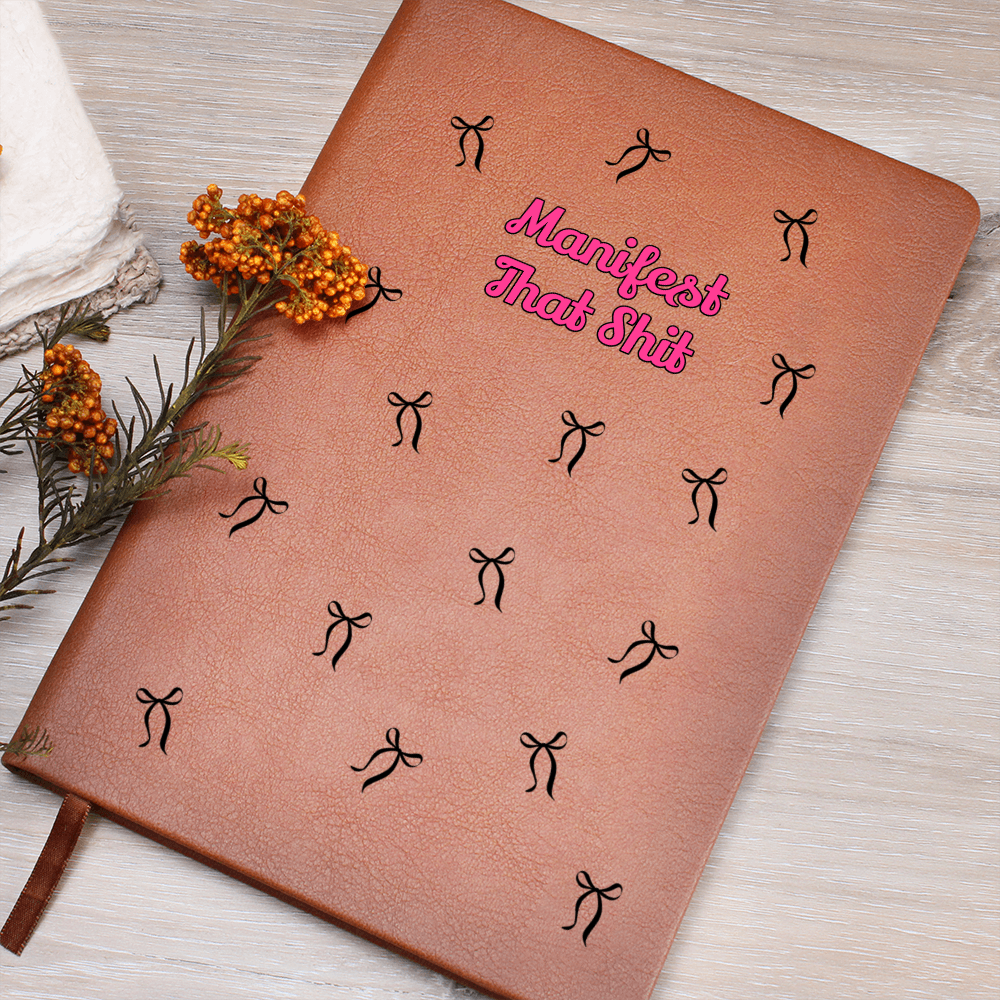 Manifest
That Shit